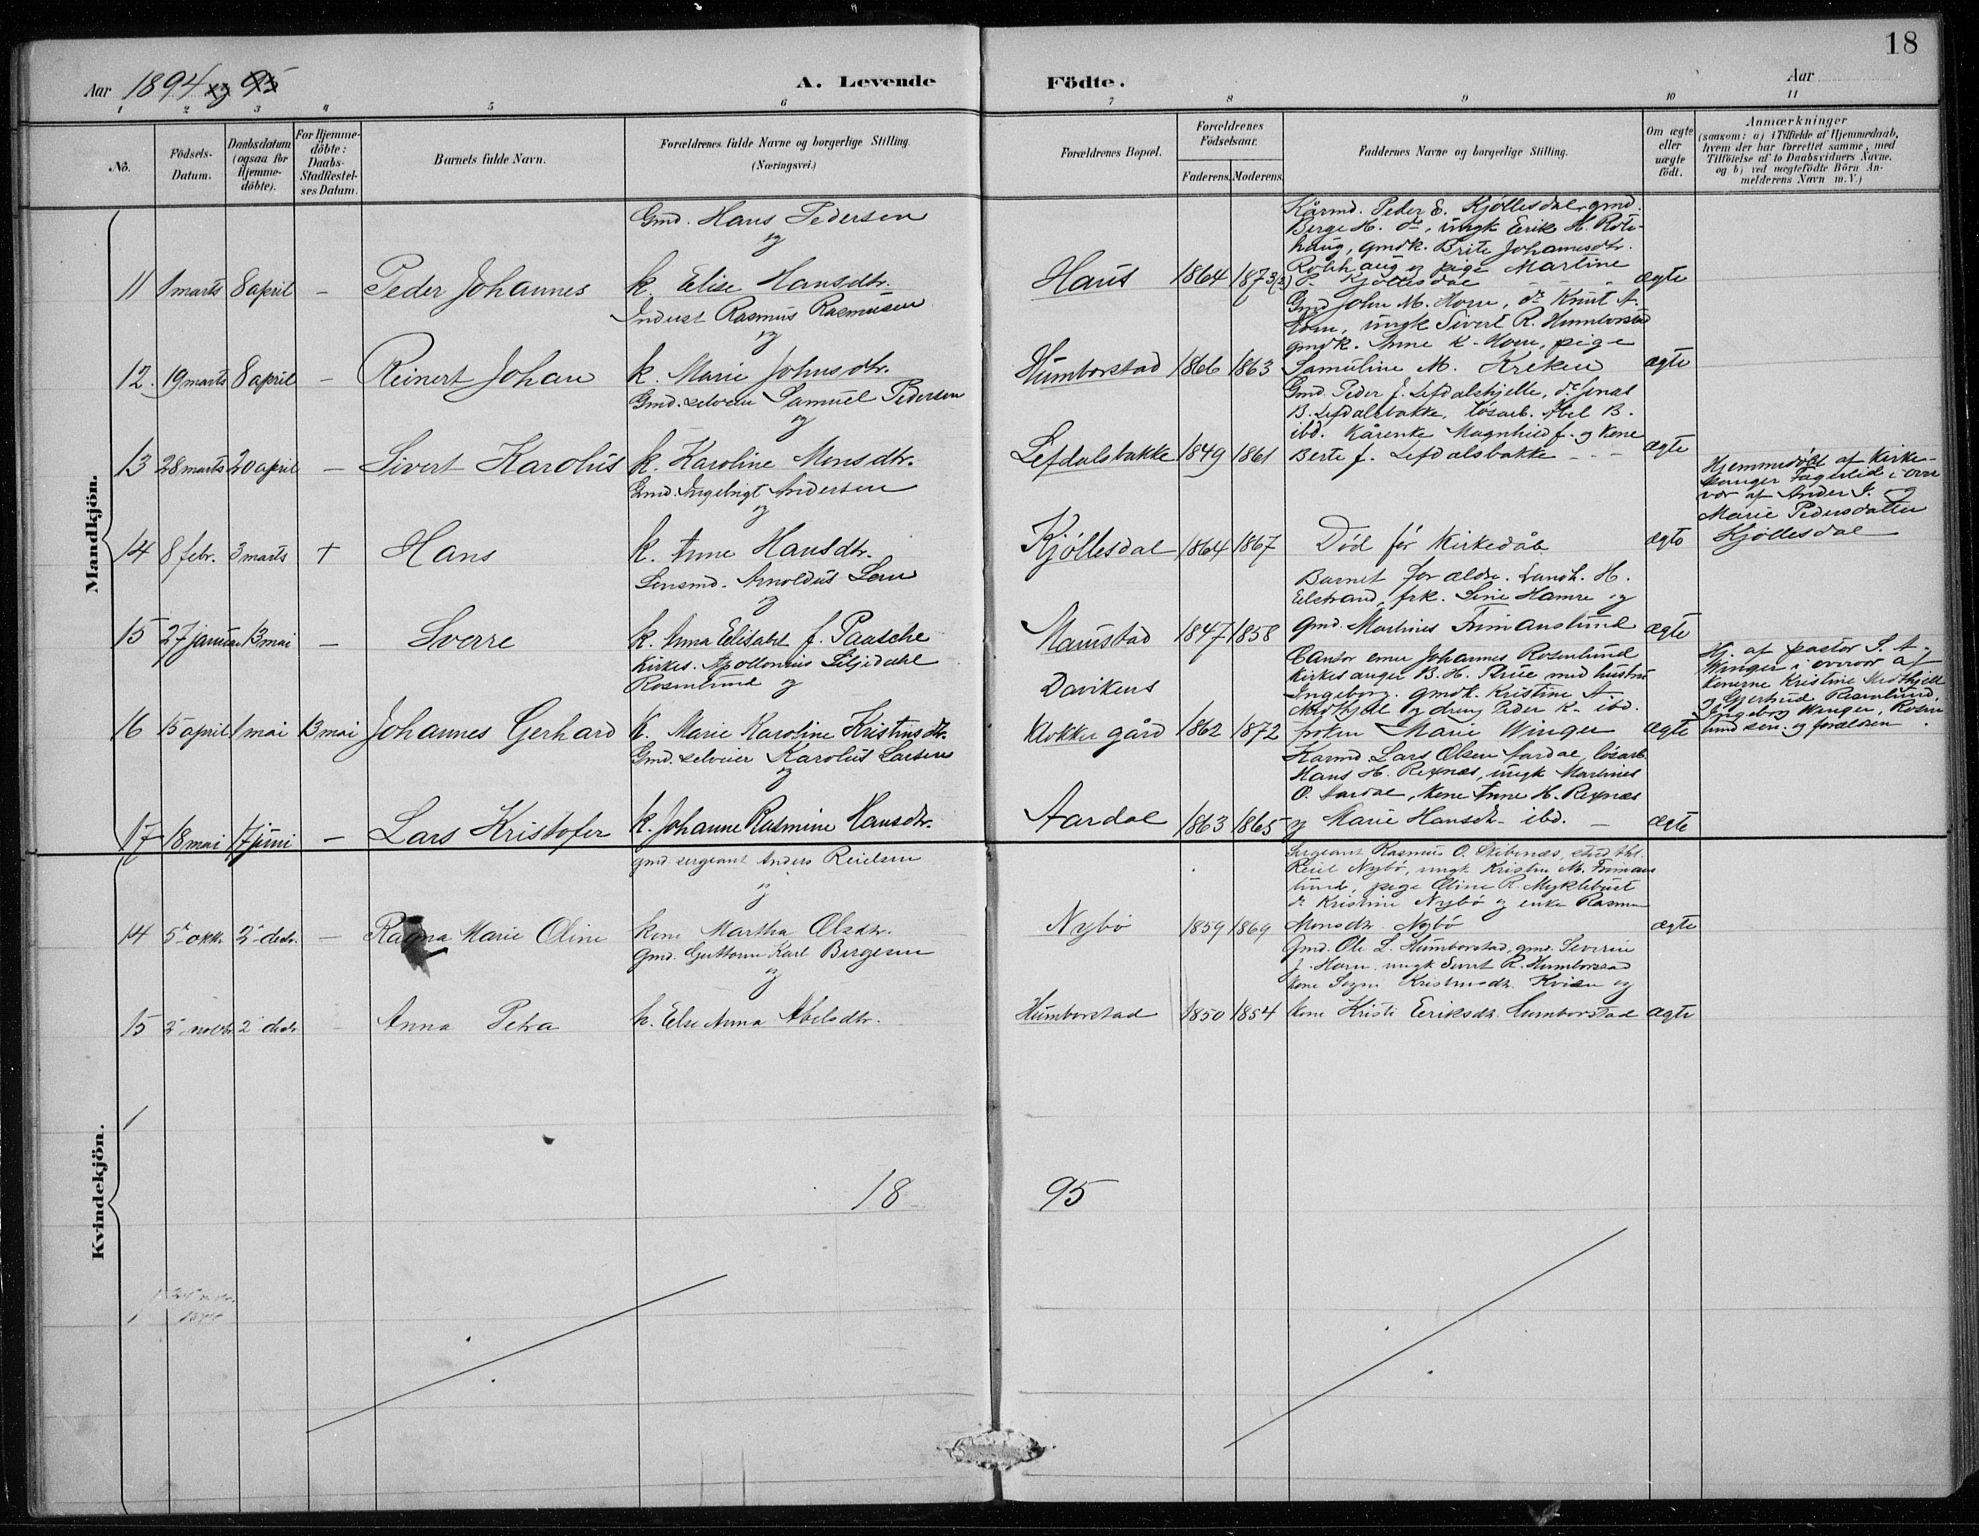 18
Aar 1894 og 95
A. Levende Födte.
Aar
1 2 3 4 5 6 7 8 9 10 11
No.
Födsels-
Datum.
Daabsdatum
(ogsaa for
Hjemme-
döbte).
For Hjemme-
döbte:
Daabs-
Stadfæstel-
ses Datum.
Barnets fulde Navn.
Forældrenes fulde Navne og borgerlige Stilling.
(Næringsvei.)
Forældrenes Bopæl.
Forældrenes
Födselsaar.
Faderens. Moderens.
Faddernes Navne og borgerlige Stilling.
Om ægte
eller
uægte
födt.
Anmærkninger
(saasom: a) i Tilfælde af Hjemmedaab,
hvem der har forrettet samme, med
Tilföielse af to Daabsvidners Navne,
og b) ved uægtefödte Börn An-
melderens Navn m. V.)
Mandkjön.
11 1 marts 8 april – Peder Johannes
Gmd. Hans Pedersen
og
k. Elise Hansdtr.
Haus 1864 1873
Kårmd. Peder E. Kjøllesdal, gmd.
Berge H. do, ungk Erik H. Rote-
haug, gmdk. Brite Johannesdtr.
Rotehaug og pige Martine
P. Kjøllesdal
ægte
12. 19 marts 8 april – Reinert Johan
Indust Rasmus Rasmussen
og
k. Marie Johnsdtr.
Humborstad 1866 1863
Gmd John M. Horn, do Knut A.
Horn, ungk Sivert R. Humborstad
gmdk. Anne K. Horn, pige
Samuline M. Kreken
ægte
13 28 marts 20 april – Sivert Karolus
Gmd. selveier Samuel Pedersen
og
k. Karoline Monsdtr.
Lefdalsbakke 1849 1861
Gmd Peder J. Lefdalshjelle, do Jonas
B. Lefdalsbakke, løsarb. Abel B.
ibd. Kårenke Magnhild J. og kone
Berte J. Lefdalsbakke - -
ægte
14 8 febr. 3 marts + Hans
Gmd. Ingebrigt Andersen
og
k. Anne Hansdtr.
Kjøllesdal 1864 1867
Død før kirkedåb
ægte
Hjemmedøbt af Kirke-
sanger Fagerlid i over
vær af Ander J. og
Marie Pedersdatter
Kjøllesdal
15 27 januar 13 mai – Sverre
Lensmd. Arnoldus Lem
og
k. Anna Elisabet f. Paasche
Maurstad 1847 1858
Barnet forældre. Landh. H.
Eelstrand, frk. Sine Hamre og
Gmd. Martines Frimanslund
ægte
16 15 april 1 mai 13 mai Johannes Gerhard
Kirkes. Apollonius Siljedahl
Rosenlund og
k. Marie Karoline Kristinsdtr.
Davikens
klokkergård 1862 1872
Cantor emer Johannes Rosenlund
kirkesanger B. H. Prue med hustru
Ingeborg. gmdk. Kristine A.
Midthjell og dreng Peder K. ibd.
frøken Marie Winger
ægte
Hj. af pastor S. A.
Winger i overvær af
konerne Kristine Midthjell
og Gjertrud Rosenlund,
Ingeborg Winger, Rosen
lund sen. og forældren.
17 18 mai 17 juni – Lars Kristofer
Gmd. selveier Karolus Larsen
og
k. Johanne Rasmine Hansdtr.
Aardal 1863 1865
Kårmd. Lars Olsen Aardal, løsarb.
Hans H. Rexnæs, ungk Martines
O. Aardal, kone Anne H. Rexnæs
og Marie Hansdtr ibd. –
ægte
Kvindekjön.
14 5 oktr. 2 decbr. – Ragna Marie Oline
gmd sergeant Anders Reielsen
og
kone Martha Olsdtr.
Nybø 1859 1869
Sergeant Rasmus O. Skibenæs,
Reiel Nybø, ungk Kristen M. Frimans
lund, pige Oline R. Myklebust
do Kristine Nybø og enke Rasmine
Monsdtr. Nybø
ægte
15 2 novbr 2 decbr – Anna Petra
Gmd. Guttorm Karl Bergesen
og
k. Else Anna Abelsdtr.
Humborstad 1850 1854
Gmd. Ole L. Humborstad, gmd. Severin
J. Horn, ungk Sivert R. Humborstad
kone Kristensdtr. Kvien og
kone Kristi Eeriksdtr. Humborstad
ægte
18 95